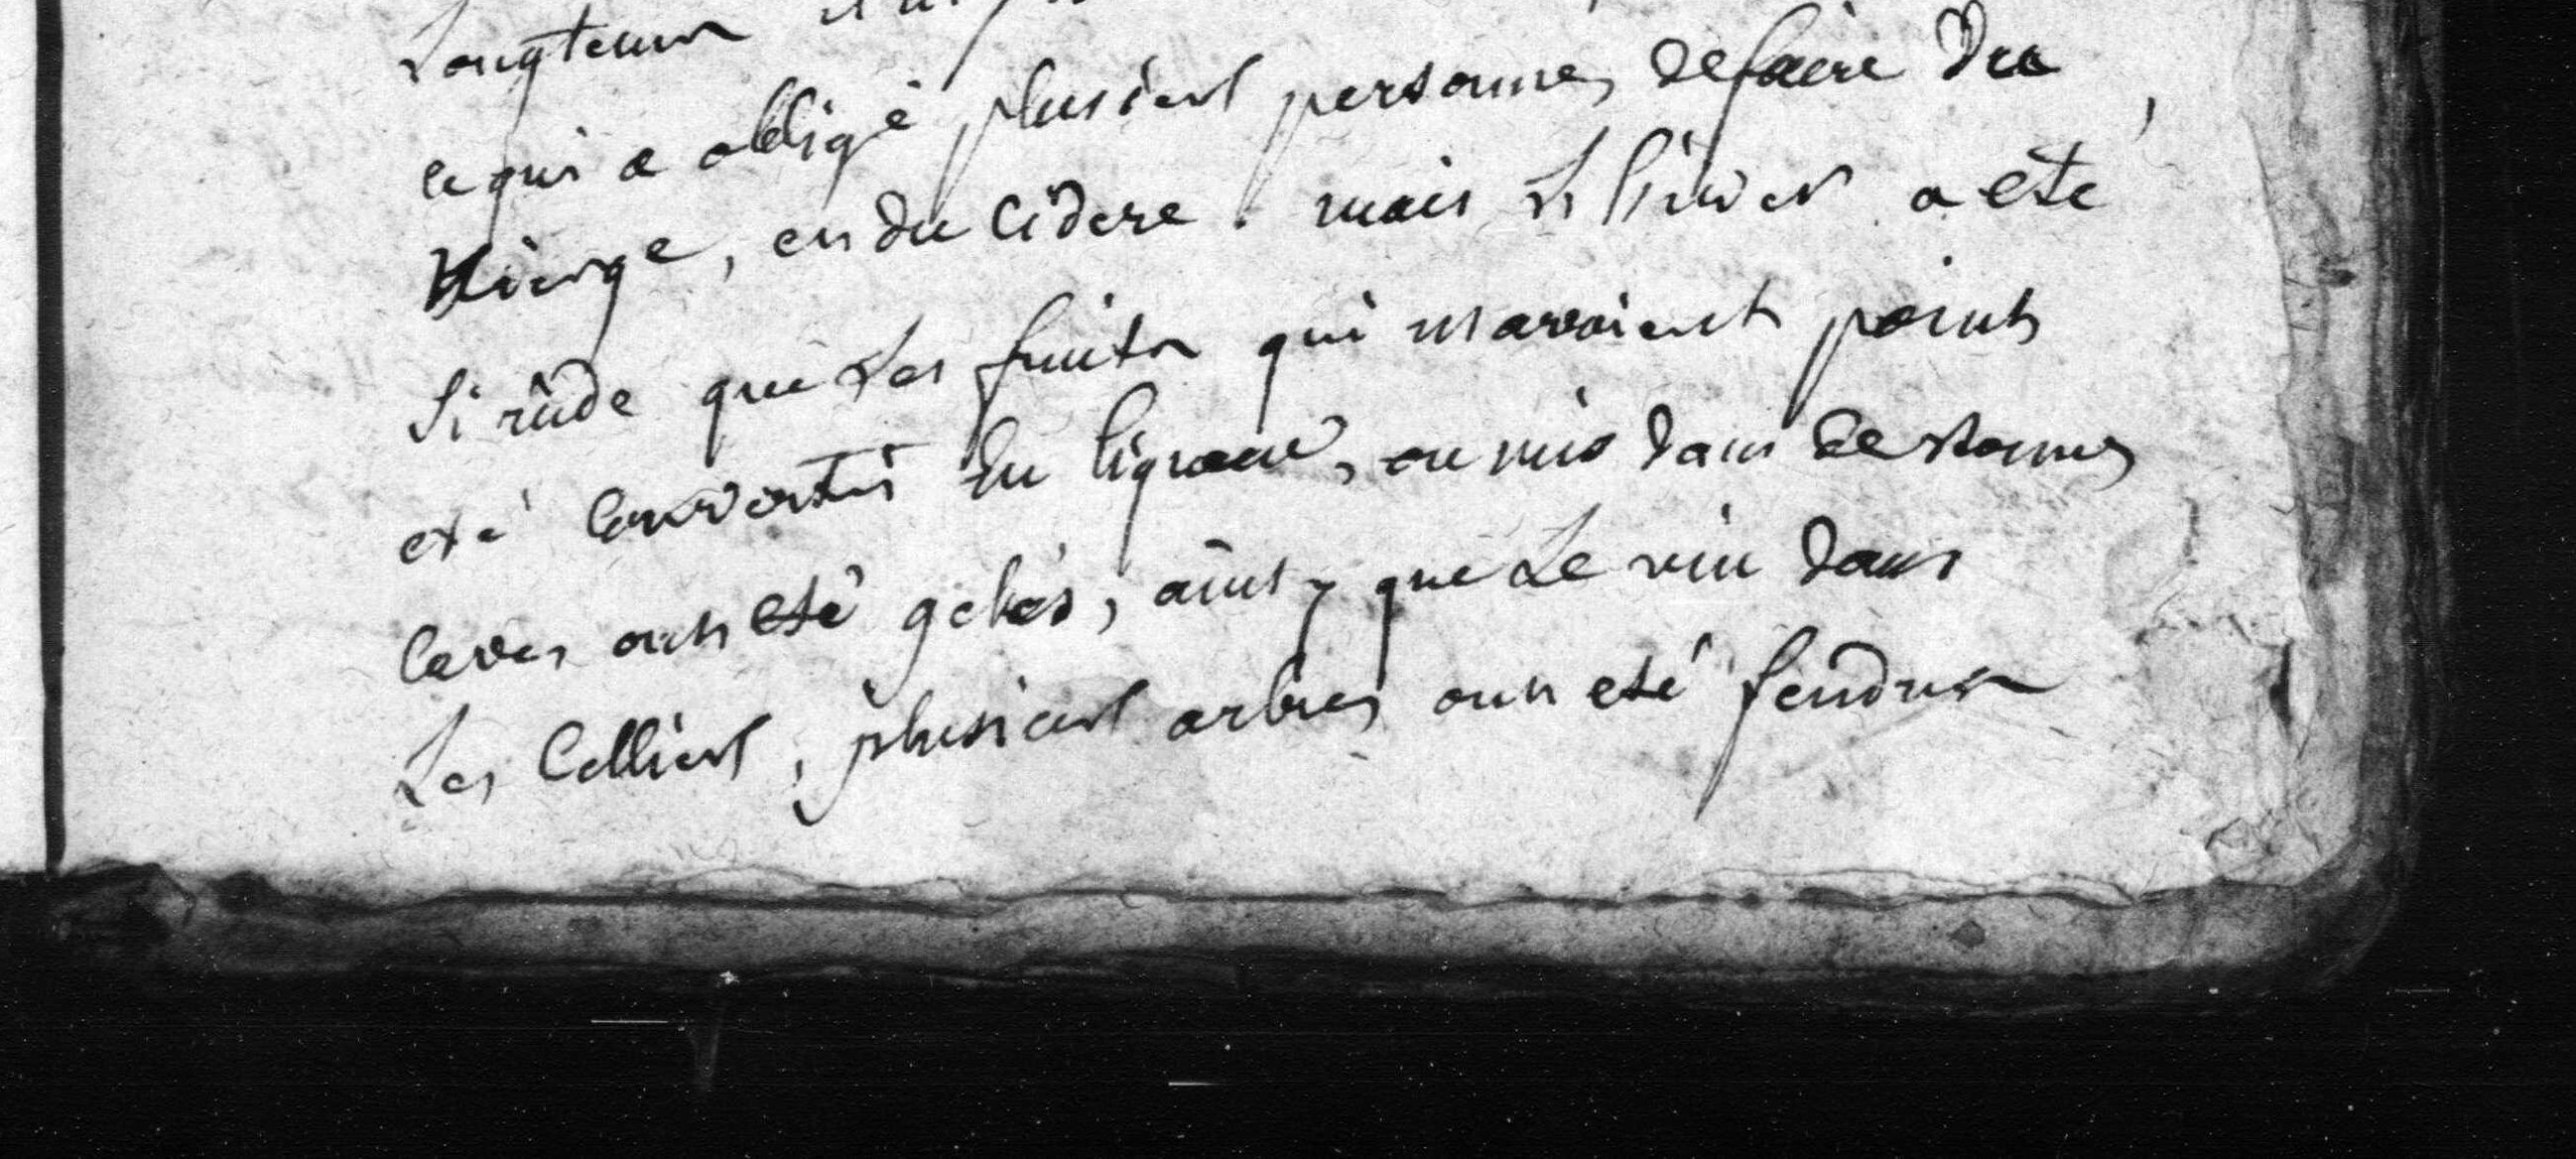 Longtems
ce qui a obligé plusieurs personnes de faire du
vierge, en du cidere. mais Lhiver a eté
si rûde que Les fruits qui n'avoient point
eté convertis en liqueur, ou mis dans de bonnes
caves ont eté gelés, ainsy que Le vin dans
Les Celliers, plusieurs arbres ont eté fendus